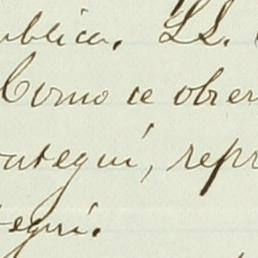 ública. LL.
Como se obser
ntegui, repr
tegui.